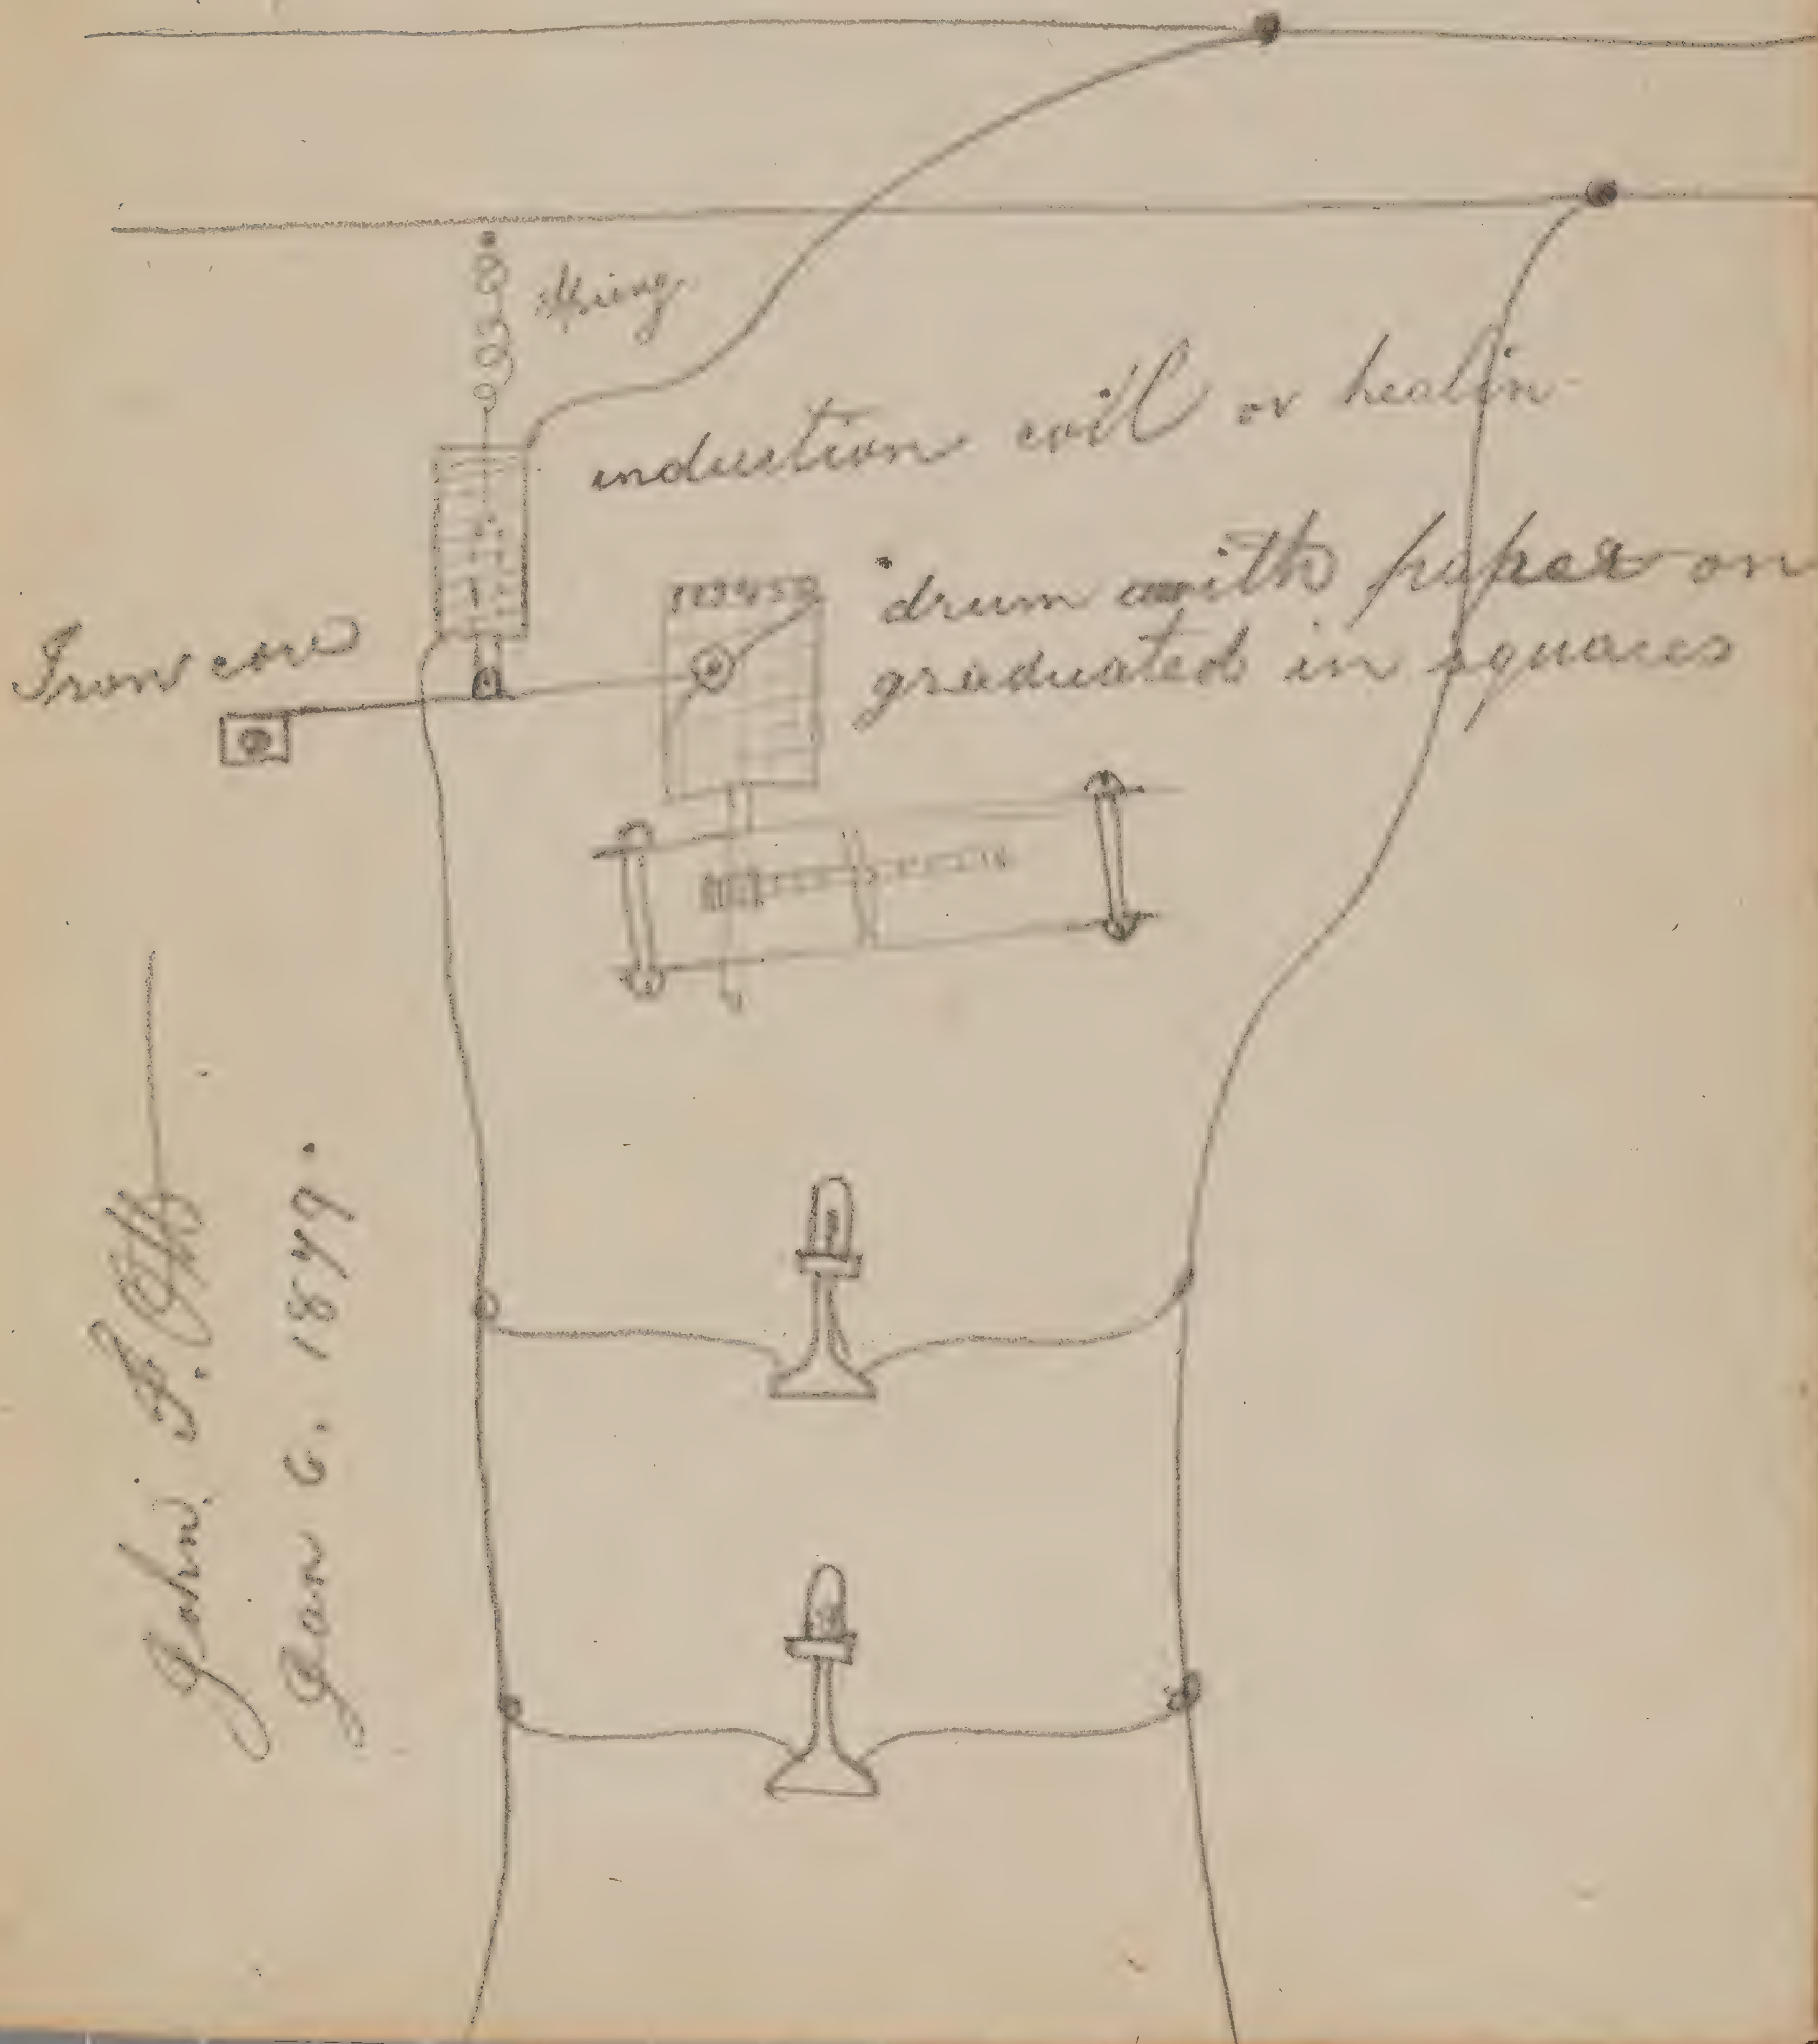 Spring
induction coil or healin
drum with paper on
graduated in squares
Iron core
John F. Ott
Jan 6. 1879.